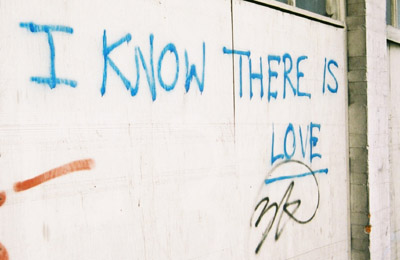 I KNOW THERE IS
LOVE